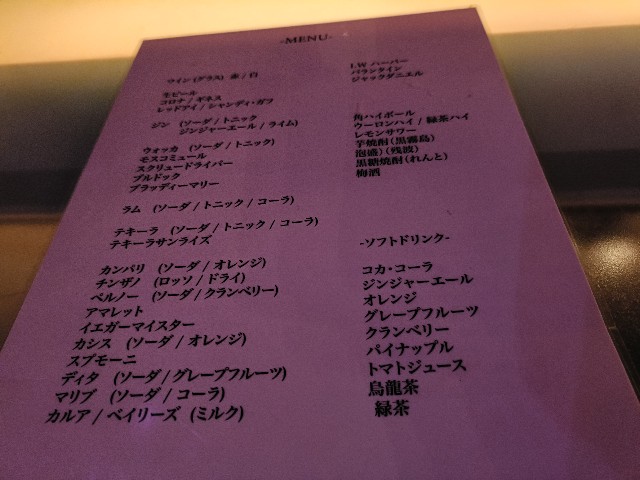 -MENU-
ワイン (グラス) 赤 / 白
生ビール
コロナ / ギネス
レッドアイ / シャンディ・ガフ
ジン (ソーダ / トニック
ジンジャーエール / ライム)
ウォッカ (ソーダ / トニック)
モスコミュール
スクリュードライバー
ブルドック
ブラッディーマリー
ラム (ソーダ / トニック / コーラ)
テキーラ (ソーダ / トニック / コーラ)
テキーラサンライズ
カンパリ (ソーダ / オレンジ)
チンザノ (ロッソ / ドライ)
ペルノー (ソーダ / クランベリー)
アマレット
イエガーマイスター
カシス (ソーダ / オレンジ)
スプモーニ
ディタ (ソーダ / グレープフルーツ)
マリブ (ソーダ / コーラ)
カルア / ベイリーズ (ミルク)
I.W ハーパー
バランタイン
ジャックダニエル
角ハイボール
ウーロンハイ / 緑茶ハイ
レモンサワー
芋焼酎 (黒霧島)
泡盛 (残波)
黒糖焼酎 (れんと)
梅酒
-ソフトドリンク-
コカ・コーラ
ジンジャーエール
オレンジ
グレープフルーツ
クランベリー
パイナップル
トマトジュース
烏龍茶
緑茶